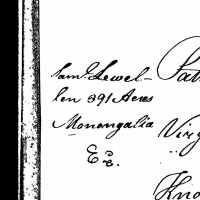 Saml. Lewel-
len 391 Acres
Monongalia
Ex.
Virg
Kno